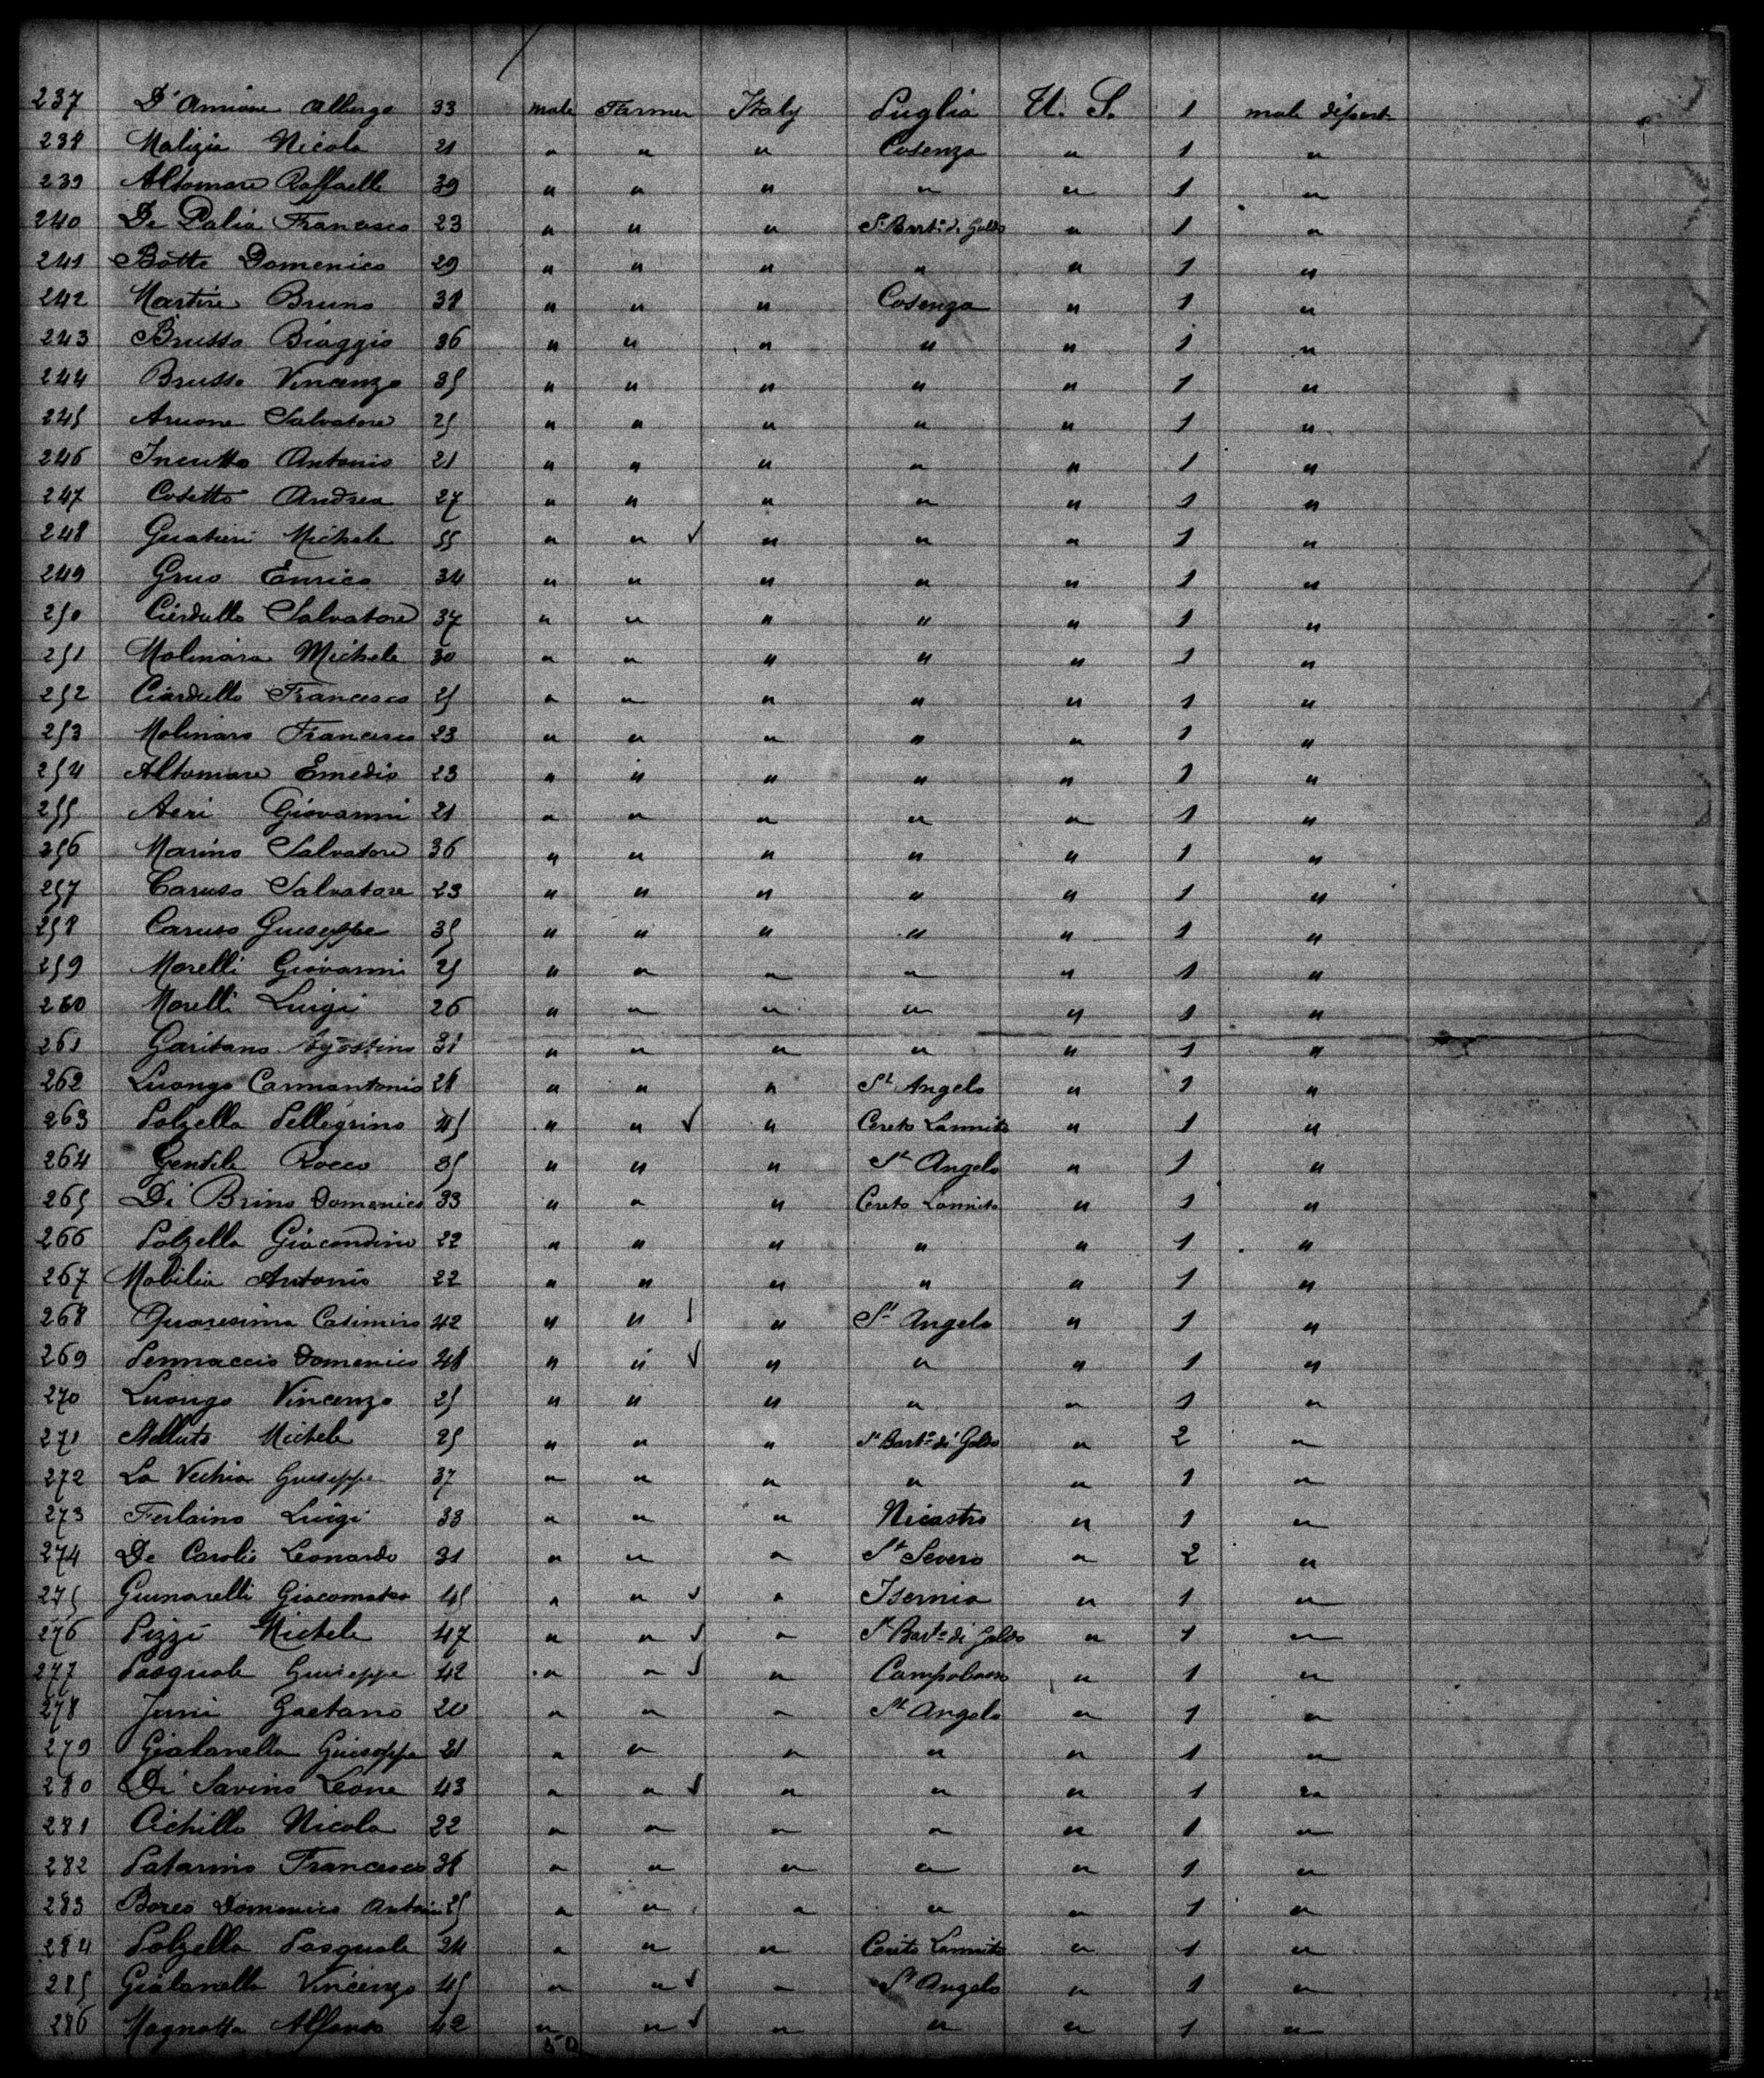 237 D'Amione Alberge 33 male Farmer Italy Puglia U. S. 1 male deport
238 Malizia Nicola 21 " " " Cosenza " 1 "
239 Altomare Raffaelle 39 " " " " " 1 "
240 De Palia Francesco 23 " " " St Bart. di Galdo " 1 "
241 Botte Domenico 29 " " " " " 1 "
242 Martire Bruno 38 " " " Cosenza " 1 "
243 Brusso Biaggio 36 " " " " " 1 "
244 Brusso Vincenzo 35 " " " " " 1 "
245 Salvatore 25 " " " " " 1 "
246 Antonio 21 " " " " " 1 "
247 Cosetto Andrea 27 " " " " " 1 "
248 Michele 55 " " ✓ " " " 1 "
249 Enrico 34 " " " " " 1 "
250 Cierdullo Salvatore 37 " " " " " 1 "
251 Molinaro Michele 30 " " " " " 1 "
252 Ciardullo Francesco 25 " " " " " 1 "
253 Molinaro Francesco 23 " " " " " 1 "
254 Altomare Emedio 23 " " " " " 1 "
255 Aeri Giovanni 21 " " " " " 1 "
256 Marino Salvatore 36 " " " " " 1 "
257 Caruso Salvatore 23 " " " " " 1 "
258 Caruso Giuseppe 35 " " " " " 1 "
259 Morelli Giovanni 25 " " " " " 1 "
260 Morelli Luigi 26 " " " " " 1 "
261 Garitano Agostino 31 " " " " " 1 "
262 Luongo Carmantonio 28 " " " St Angelo " 1 "
263 Polzella Pellegrino 45 " " ✓ " Cereto Sannita " 1 "
264 Gentile Rocco 35 " " " St Angelo " 1 "
265 Di Brino Domenico 33 " " " Cereto Sannito " 1 "
266 Polzella Giocondino 22 " " " " " 1 "
267 Mobilia Antonio 22 " " " " " 1 "
268 Quaresima Casimiro 42 " " ✓ " St Angelo " 1 "
269 Pennaccio Domenico 48 " " ✓ " " " 1 "
270 Luongo Vincenzo 25 " " " " " 1 "
271 Stelluto Michele 25 " " " St Barto di Galdo " 2 "
272 La Vechia Giuseppe 37 " " " " " 1 "
273 Ferlaino Luigi 33 " " " Nicastro " 1 "
274 De Carolis Leonardo 31 " " " St Severo " 2 "
275 Gumarelli Giacomateo 45 " " ✓ " Isernia " 1 "
276 Pizzi Michele 47 " " ✓ " St Barto di Galdo " 1 "
277 Pasquale Giuseppe 42 " " ✓ " Campobasso " 1 "
278 Juni Gaetano 20 " " " St Angelo " 1 "
279 Gialanella Giuseppe 21 " " " " " 1 "
280 Di Savino Leone 43 " " ✓ " " " 1 "
281 Cichillo Nicola 22 " " " " " 1 "
282 Patarino Francesco 38 " " " " " 1 "
283 Boreo Domenico Antonio 25 " " " " " 1 "
284 Polzella Pasquale 24 " " " Cerito Sannito " 1 "
285 Gialanella Vincenzo 45 " " ✓ " St Angelo " 1 "
286 Magnotta Alfonso 42 " " ✓ " " " 1 "
50